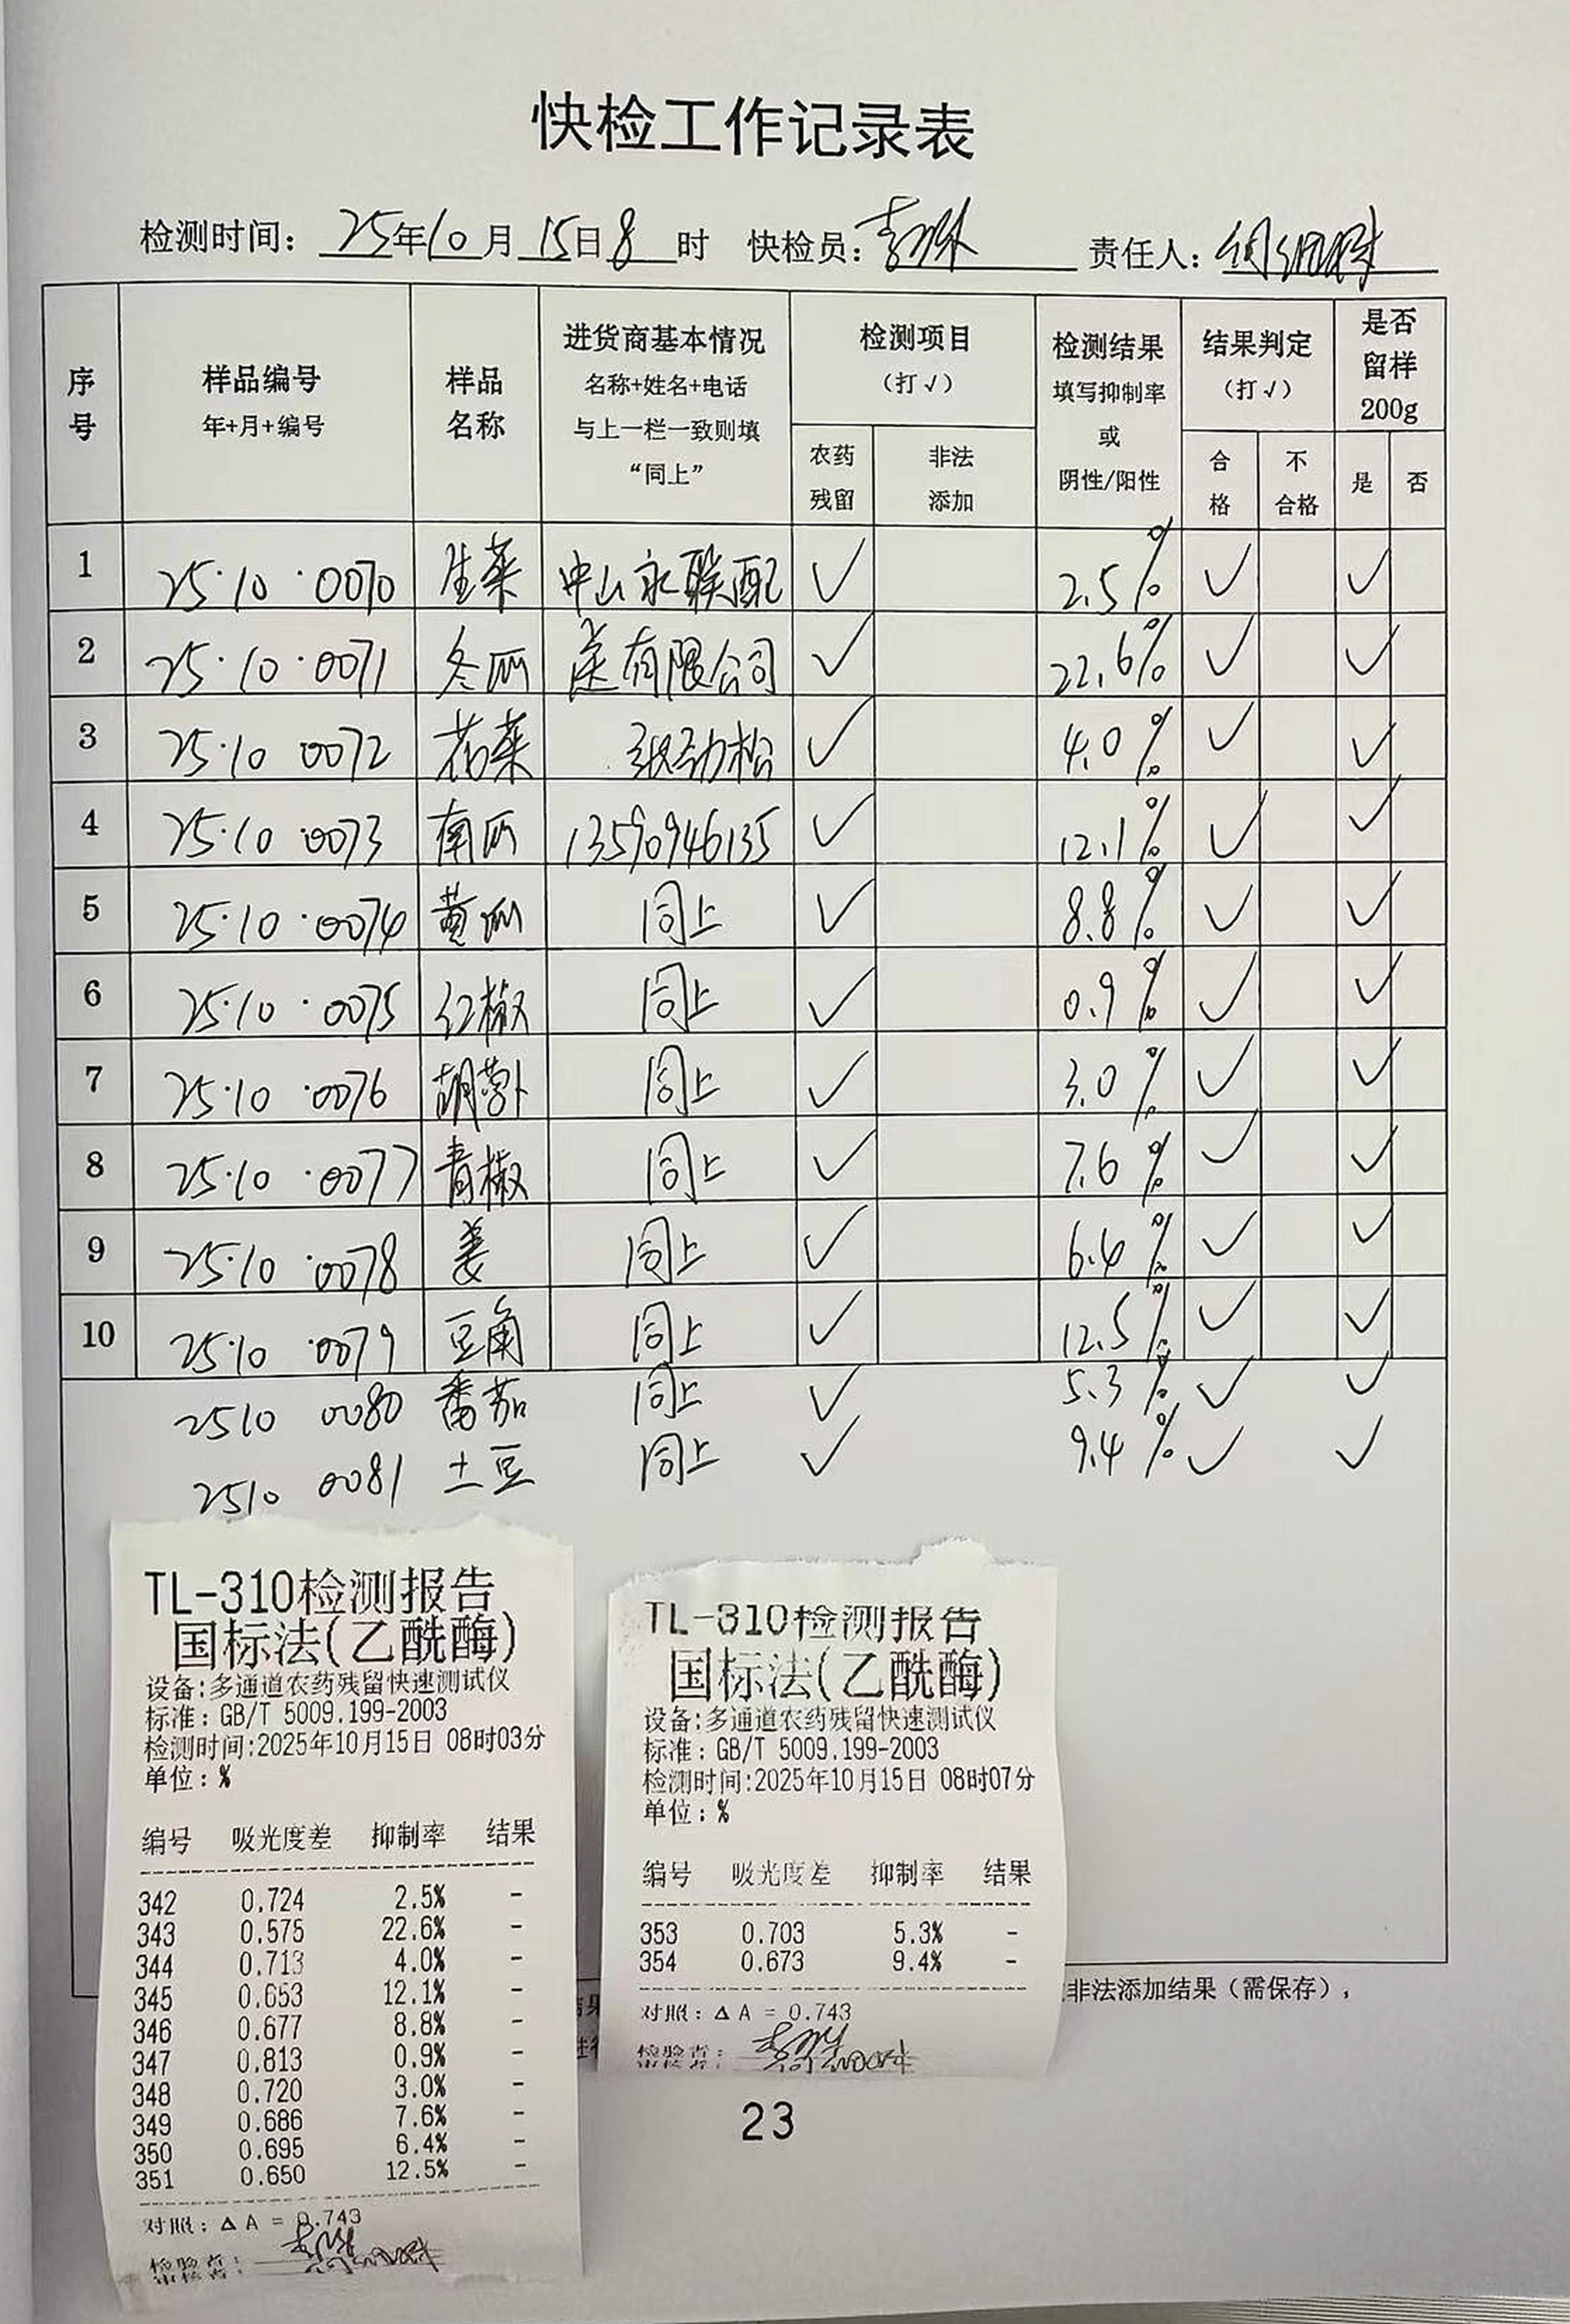 快检工作记录表
检测时间：25年10月15日8时 快检员： 责任人：
序号 样品编号 年+月+编号 样品名称 进货商基本情况 名称+姓名+电话 与上一栏一致则填“同上” 检测项目（打√） 农药残留 非法添加 检测结果 填写抑制率或阴性/阳性 结果判定（打√） 合格 不合格 是否留样200g 是 否
1 25·10·0070 生菜 中山永联配 ✓ 2.5% ✓ ✓
2 25·10·0071 冬瓜 送有限公司 ✓ 22.6% ✓ ✓
3 25·10 0072 花菜 张劲松 ✓ 4.0% ✓ ✓
4 25·10·0073 南瓜 13590946135 ✓ 12.1% ✓ ✓
5 25·10·0074 黄瓜 同上 ✓ 8.8% ✓ ✓
6 25·10·0075 红椒 同上 ✓ 0.9% ✓ ✓
7 25·10·0076 胡萝卜 同上 ✓ 3.0% ✓ ✓
8 25·10·0077 青椒 同上 ✓ 7.6% ✓ ✓
9 25·10·0078 姜 同上 ✓ 6.4% ✓ ✓
10 25·10·0079 豆角 同上 ✓ 12.5% ✓ ✓
2510 0080 番茄 同上 ✓ 5.3% ✓ ✓
2510 0081 土豆 同上 ✓ 9.4% ✓ ✓
TL-310检测报告
国标法(乙酰酶)
设备:多通道农药残留快速测试仪
标准：GB/T 5009.199-2003
检测时间:2025年10月15日 08时03分
单位：%
编号 吸光度差 抑制率 结果
342 0.724 2.5% -
343 0.575 22.6% -
344 0.713 4.0% -
345 0.653 12.1% -
346 0.677 8.8% -
347 0.813 0.9% -
348 0.720 3.0% -
349 0.686 7.6% -
350 0.695 6.4% -
351 0.650 12.5% -
对照：Δ A = 0.743
检验者：
审核者：
TL-310检测报告
国标法(乙酰酶)
设备:多通道农药残留快速测试仪
标准：GB/T 5009.199-2003
检测时间:2025年10月15日 08时07分
单位：%
编号 吸光度差 抑制率 结果
353 0.703 5.3% -
354 0.673 9.4% -
对照：Δ A = 0.743
检验者：
审核者：
非法添加结果（需保存），
23